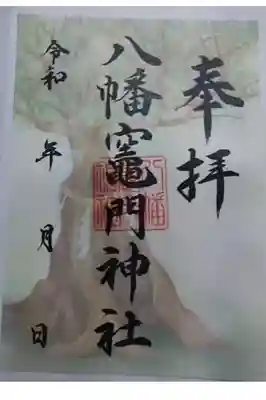 奉拝
八幡竈門神社
令和 年 月 日